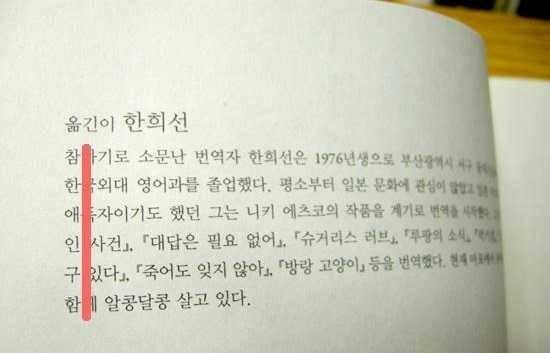 옮긴이 한희선
참하기로 소문난 번역자 한희선은 1976년생으로 부산광역시 서구
한국외대 영어과를 졸업했다. 평소부터 일본 문화에 관심이 많았고 일본
애독자이기도 했던 그는 니키 에츠코의 작품을 계기로 번역을 시작했다.
인 사건』, 『대답은 필요 없어』, 『슈거리스 러브』, 『루팡의 소식』,
구 있다』, 『죽어도 잊지 않아』, 『방랑 고양이』 등을 번역했다. 현재 마포에서
함께 알콩달콩 살고 있다.